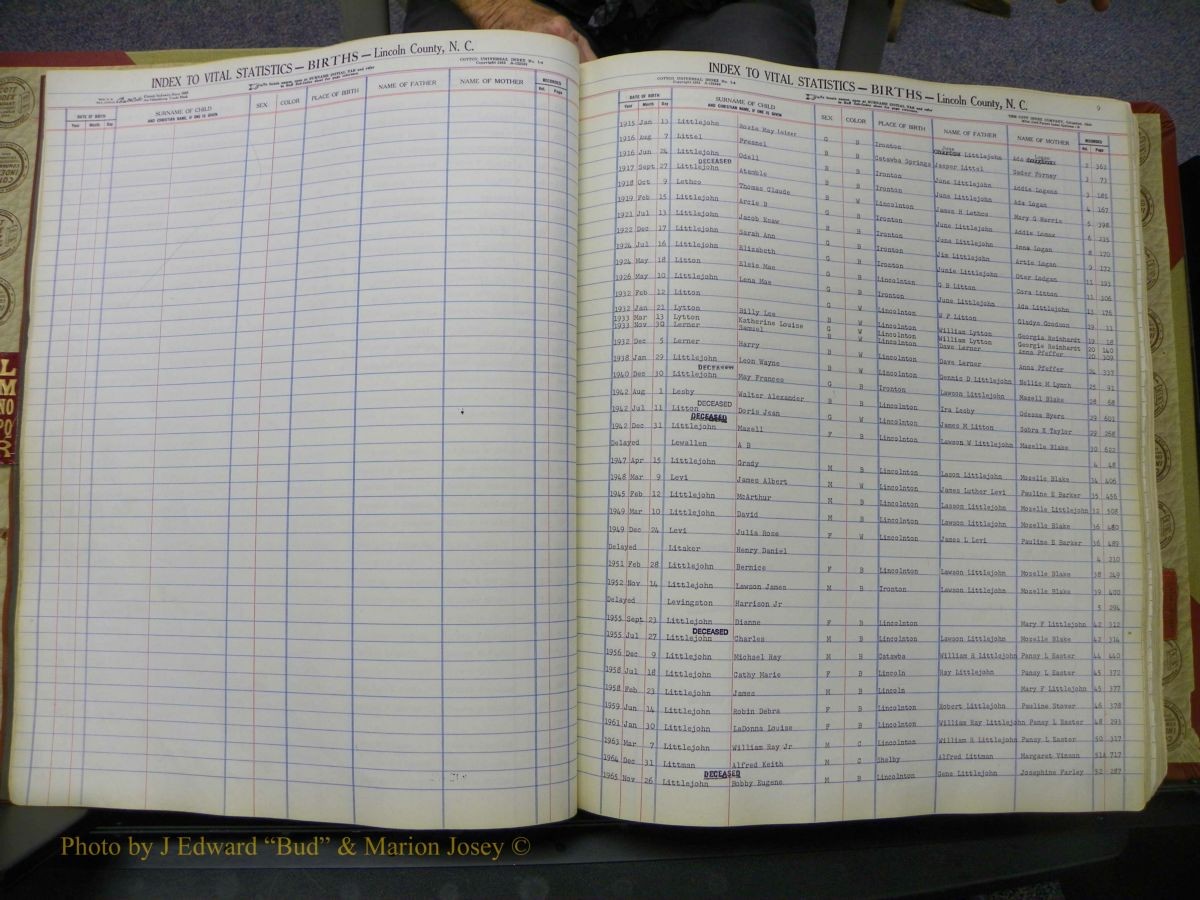 INDEX TO VITAL STATISTICS — BIRTHS — Lincoln County, N. C.
COTT UNIVERSAL INDEX
DATE OF BIRTH
Year Month Day
SURNAME OF CHILD
AND CHRISTIAN NAME, IF ONE IS GIVEN
SEX COLOR PLACE OF BIRTH NAME OF FATHER NAME OF MOTHER RECORDED
Vol. Page
INDEX TO VITAL STATISTICS — BIRTHS — Lincoln County, N. C.
9
DATE OF BIRTH
Year Month Day
SURNAME OF CHILD
AND CHRISTIAN NAME, IF ONE IS GIVEN
SEX COLOR PLACE OF BIRTH NAME OF FATHER NAME OF MOTHER RECORDED
Vol. Page
1915 Jan 13 Littlejohn G B Ironton Littlejohn Ada Logan 2 363
1916 Aug 7 Littel Presnel B B Catawba Springs Jasper Littel Forney 3 73
1916 Jun 24 Littlejohn Odell B B Ironton June Littlejohn Addie Logans 3 181
DECEASED
1917 Sept 27 Littlejohn B B Ironton June Littlejohn Ada Logan 4 167
1918 Oct 9 Lethco Thomas Claude B W Lincolnton James H Lethco Mary G Harris 5 398
1919 Feb 15 Littlejohn Arcie B G B Ironton June Littlejohn Addie 6 235
1921 Jul 13 Littlejohn Jacob B B Ironton June Littlejohn Anna Logan 8 170
1922 Dec 17 Littlejohn Sarah Ann G B Ironton Jim Littlejohn Artie Logan 9 172
1924 Jul 16 Littlejohn Elizabeth G B Ironton Junie Littlejohn 11 193
1924 May 18 Litton Elsie Mae G W Lincolnton G B Litton Cora Litton 11 306
1926 May 10 Littlejohn Lena Mae G B Ironton June Littlejohn Ada Littlejohn 13 176
1932 Feb 12 Litton G W Lincolnton W P Litton Gladys Goodson 19 11
1932 Jan 21 Lytton Billy Lee B W Lincolnton William Lytton Georgia Reinhardt 19 18
1933 Mar 13 Lytton Katherine Louise G W Lincolnton William Lytton Georgie Reinhardt 20 140
1933 Nov 30 Lerner Samuel B W Lincolnton Dave Lerner Anna Pfeffer 20 309
1932 Dec 5 Lerner Harry B W Lincolnton Dave Lerner Anna Pfeffer 24 337
1938 Jan 29 Littlejohn Leon Wayne B W Lincolnton Dennis D Littlejohn Nellie M Lynch 25 91
DECEASED
1940 Dec 30 Littlejohn May Frances G B Ironton Lawson Littlejohn Mazell Blake 28 68
1942 Aug 1 Lesby Walter Alexander B B Lincolnton Ira Lesby Odessa Byers 29 601
DECEASED
1942 Jul 11 Litton Doris Jean G W Lincolnton James M Litton Debra K Taylor 29 268
DECEASED
1942 Dec 31 Littlejohn Mazell F B Lincolnton Lawson W Littlejohn Mazelle Blake 30 622
Delayed Lewallen A B 4 48
1947 Apr 15 Littlejohn Grady M B Lincolnton Lason Littlejohn Mozelle Blake 34 406
1948 Mar 9 Levi James Albert M W Lincolnton James Luther Levi Pauline E Barker 35 456
1945 Feb 12 Littlejohn McArthur M B Lincolnton Lasson Littlejohn Mozelle Littlejohn 32 508
1949 Mar 10 Littlejohn David M B Lincolnton Lawson Littlejohn Mozelle Blake 36 480
1949 Dec 24 Levi Julia Rose F W Lincolnton James L Levi Pauline E Barker 36 489
Delayed Litaker Henry Daniel 4 210
1951 Feb 28 Littlejohn Bernice F B Lincolnton Lawson Littlejohn Mozelle Blake 38 249
1952 Nov 14 Littlejohn Lawson James M B Ironton Lawson Littlejohn Mozelle Blake 39 400
Delayed Levingston Harrison Jr 5 294
1955 Sept 23 Littlejohn Dianne F B Lincolnton Mary F Littlejohn 42 312
DECEASED
1955 Jul 27 Littlejohn Charles M B Lincolnton Lawson Littlejohn Mozelle Blake 42 314
1956 Dec 9 Littlejohn Michael Ray M B Catawba William R Littlejohn Pansy L Easter 44 440
1958 Jul 18 Littlejohn Cathy Marie F B Lincoln Ray Littlejohn Pansy L Easter 45 372
1958 Feb 23 Littlejohn James M B Lincoln Mary F Littlejohn 45 377
1959 Jun 14 Littlejohn Robin Debra F B Lincolnton Robert Littlejohn Pauline Stover 46 378
1961 Jan 30 Littlejohn LaDonna Louise F B Lincolnton William Ray Littlejohn Pansy L Easter 48 293
1963 Mar 7 Littlejohn William Ray Jr M C Lincolnton William R Littlejohn Pansy L Easter 50 317
1964 Dec 31 Littman Alfred Keith M C Shelby Alfred Littman Margaret Vinson 51A 717
DECEASED
1965 Nov 26 Littlejohn Bobby Eugene M B Lincolnton Gene Littlejohn Josephine Farley 52 287
Photo by J Edward “Bud” & Marion Josey ©